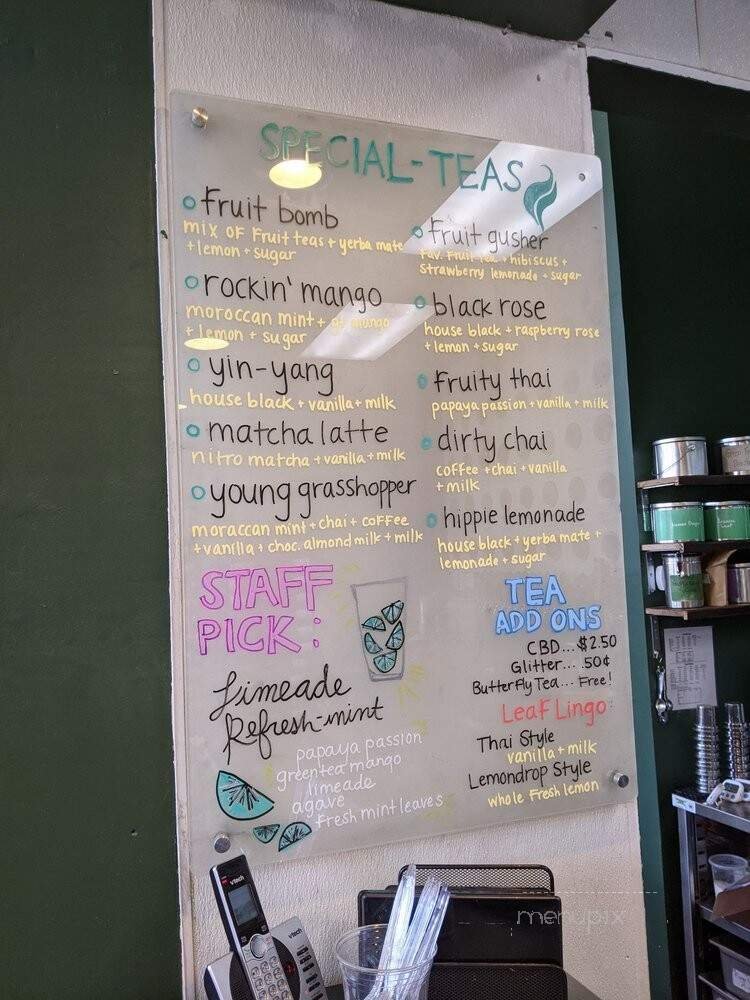 SPECIAL-TEAS
fruit bomb
mix of fruit teas + yerba mate
+ lemon + sugar
rockin' mango
moroccan mint + gt mango
+ lemon + sugar
yin-yang
house black + vanilla + milk
matcha latte
nitro matcha + vanilla + milk
young grasshopper
moraccan mint + chai + coffee
+ vanilla + choc. almond milk + milk
fruit gusher
fav. fruit tea + hibiscus +
strawberry lemonade + sugar
black rose
house black + raspberry rose
+ lemon + sugar
fruity thai
papaya passion + vanilla + milk
dirty chai
coffee + chai + vanilla
+ milk
hippie lemonade
house black + yerba mate +
lemonade + sugar
STAFF
PICK:
Limeade
Refresh-mint
papaya passion
green tea mango
limeade
agave
fresh mint leaves
TEA
ADD ONS
CBD...$2.50
Glitter.... .50¢
Butterfly Tea... Free!
Leaf Lingo
Thai Style
vanilla + milk
Lemondrop Style
whole fresh lemon
vtech
vtech
menupix